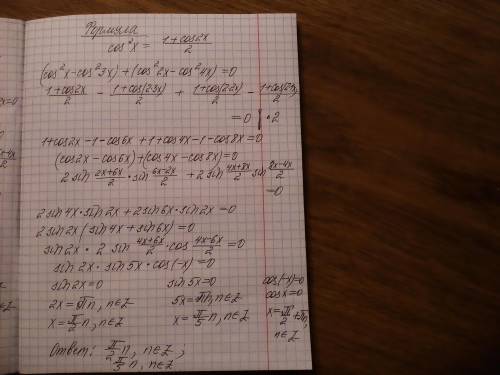 Формула
cos²x = (1+cos2x)/2
(cos²x-cos²3x)+(cos²2x-cos²4x)=0
(1+cos2x)/2 - (1+cos(2·3x))/2 + (1+cos(2·2x))/2 - (1+cos(2·4x))/2
=0 | ·2
1+cos2x-1-cos6x+1+cos4x-1-cos8x=0
(cos2x-cos6x)+(cos4x-cos8x)=0
2 sin (2x+6x)/2 · sin (6x-2x)/2 + 2 sin (4x+8x)/2 sin (8x-4x)/2
=0
2sin4x·sin2x+2sin6x·sin2x=0
2sin2x(sin4x+sin6x)=0
sin2x · 2 sin (4x+6x)/2 · cos (4x-6x)/2 =0
sin2x·sin5x·cos(-x)=0
sin2x=0 sin5x=0 cos(-x)=0
2x=πn, n∈Z 5x=πn, n∈Z cosx=0
x=π/2 n, n∈Z x=π/5 n, n∈Z x=π/2+πn,
n∈Z
Ответ: π/2 n, n∈Z ;
π/5 n, n∈Z